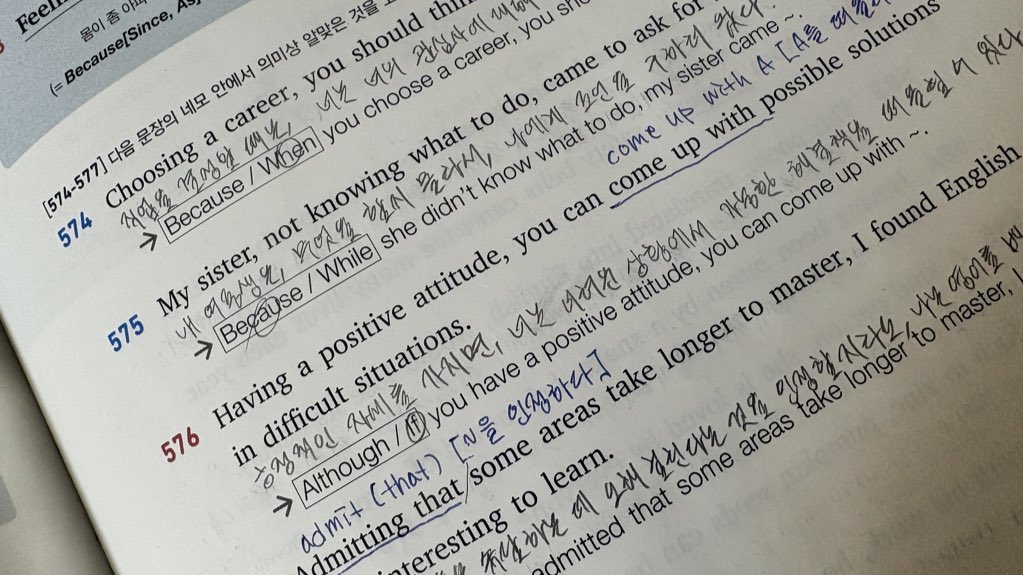 Feelin
몸이 좀 아파
(= Because[Since, As]
[574-577] 다음 문장의 네모 안에서 의미상 알맞은 것을 고
574 Choosing a career, you should thin
직업을 결정할 때는, 너는 너의 관심사에 대해
→ Because / When you choose a career, you sho
575 My sister, not knowing what to do, came to ask for
내 여동생은, 무엇을 할지 몰라서, 나에게 조언을 구하러 왔다.
→ Because / While she didn't know what to do, my sister came ~.
come up with A [A를 떠올리
576 Having a positive attitude, you can come up with possible solutions
in difficult situations.
긍정적인 자세를 가지면, 너는 어려운 상황에서 가능한 해결책을 떠올릴 수 있다
→ Although / If you have a positive attitude, you can come up with ~.
admit (that) [N을 인정하다]
Admitting that some areas take longer to master, I found English
interesting to learn.
숙달하는 데 오래 걸린다는 것을 인정할지라도, 나는 영어를 배
admitted that some areas take longer to master, I